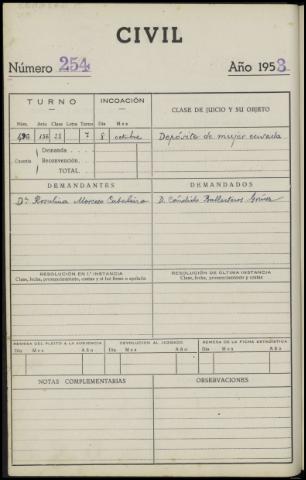 CIVIL
Número 254 Año 1953
TURNO INCOACIÓN CLASE DE JUICIO Y SU OBJETO
Núm. Acto Clase Letra Turno Día Mes
496 136 22 7 8 octubre Depósito de mujer casada
Cuantía Demanda
Reconvención
TOTAL
DEMANDANTES DEMANDADOS
Dª Rosalina D. Cándido Ballesteros
RESOLUCIÓN EN 1.ª INSTANCIA RESOLUCIÓN DE ÚLTIMA INSTANCIA
Clase, fecha, pronunciamiento, costas y si fué firme o apelado Clase, fecha, pronunciamiento y costas
REMESA DEL PLEITO A LA AUDIENCIA DEVOLUCIÓN AL JUZGADO REMESA DE LA FICHA ESTADÍSTICA
Día Mes Año Día Mes Año Día Mes Año
NOTAS COMPLEMENTARIAS OBSERVACIONES